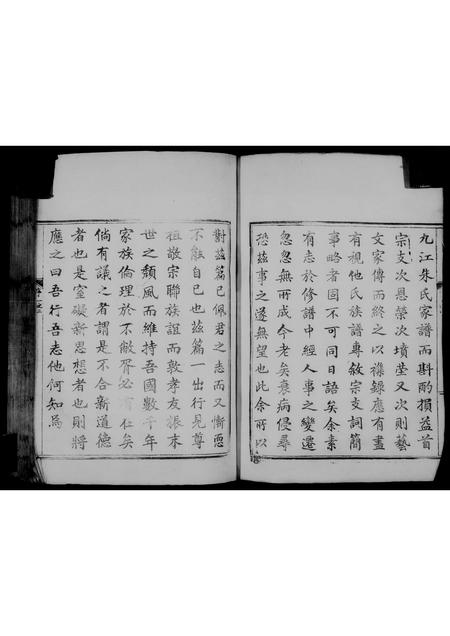 九江朱氏家譜而斟酌損益首
宗支次恩榮次墳塋又次則藝
文家傳而終之以襍錄應有盡
有視他氏族譜專敘宗支詞簡
事略者固不可同日語矣余素
有志於修譜中經人事之變遷
忽忽無所成今老矣衰病侵尋
恐茲事之遂無望也此余所以
對茲篇已佩君之志而又慚恧
不能自已也茲篇一出行見尊
祖敬宗聯族誼而敦孝友振末
世之頹風而維持吾國數千年
家族倫理於不敝胥必有仁矣
倘有議之者謂是不合新道德
者也是窒礙新思想者也則將
應之曰吾行吾志他何知焉